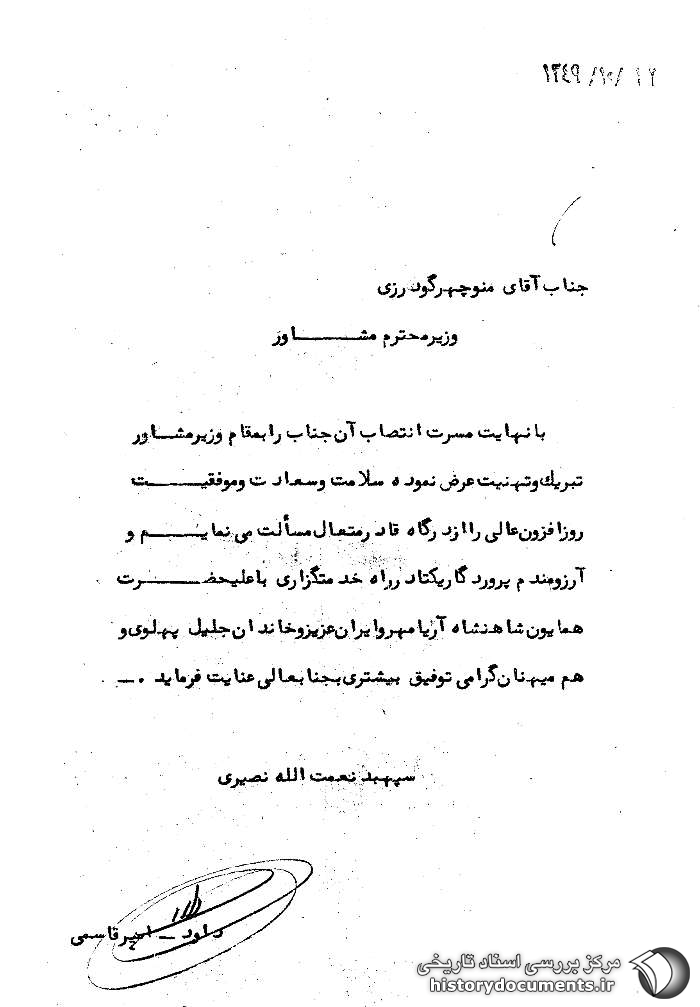 ۱۳۴۹/۱۰/۱۲
جناب آقای منوچهر گودرزی
وزیر محترم مشـــــاور
با نهایت مسرت انتصاب آن جناب را بمقام وزیر مشـــاور
تبریک و تهنیت عرض نموده سلامت و سعادت و موفقیــــــت
روزافزون عالی را از درگاه قادر متعال مسألت می نمایــــم و
آرزومندم پروردگار یکتا در راه خدمتگزاری باعلیحضــــرت
همایون شاهنشاه آریامهر و ایران عزیز و خاندان جلیل پهلوی و
هم میهنان گرامی توفیق بیشتری بجنابعالی عنایت فرماید ۰ـــ
سپهبد نعمت الله نصیری
داود ـ امیرقاسمی
مرکز بررسی اسناد تاریخی
historydocuments.ir